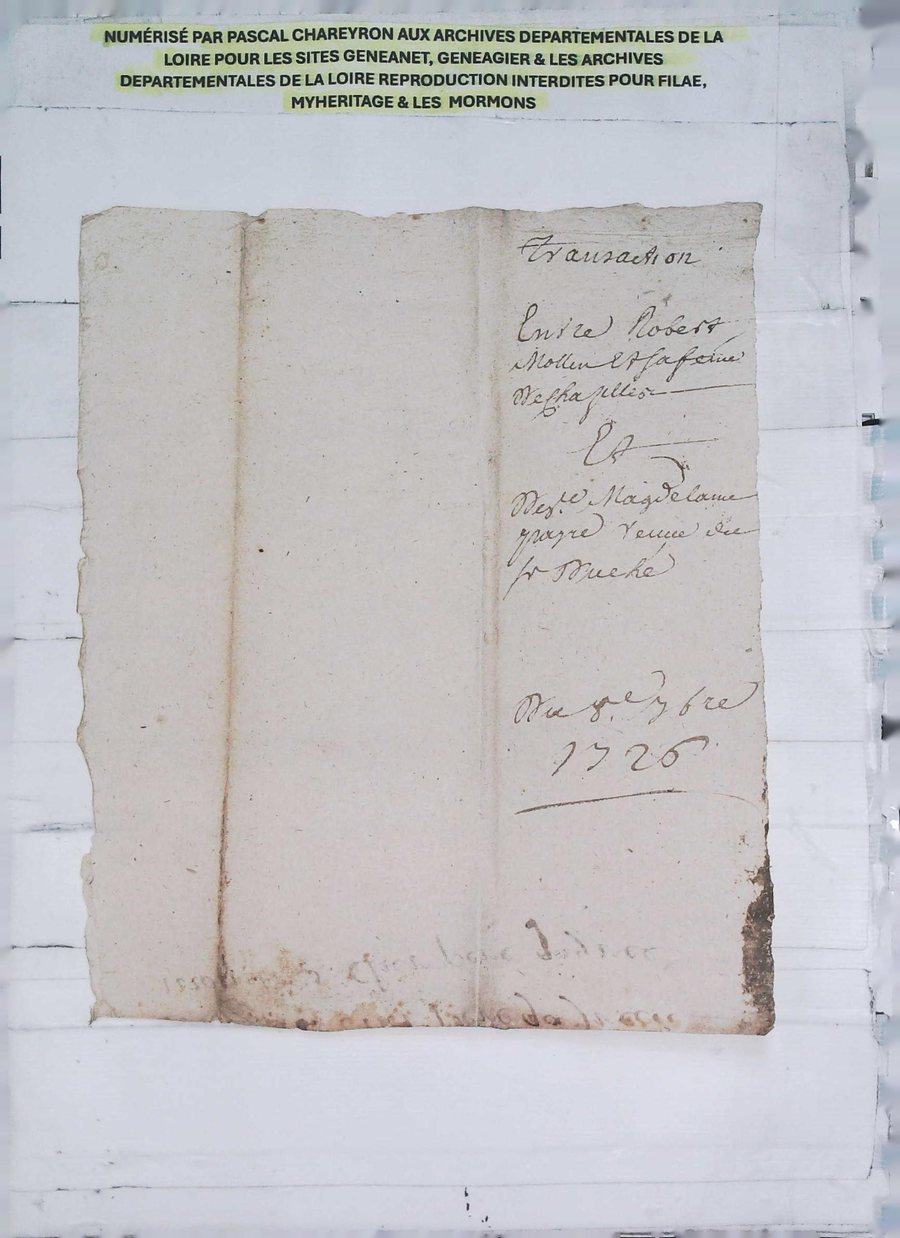 NUMÉRISÉ PAR PASCAL CHAREYRON AUX ARCHIVES DEPARTEMENTALES DE LA
LOIRE POUR LES SITES GENEANET, GENEAGIER & LES ARCHIVES
DEPARTEMENTALES DE LA LOIRE REPRODUCTION INTERDITES POUR FILAE,
MYHERITAGE & LES MORMONS
Transaction
Entre Robert
Mollin Et sa feme
Et
Magdelaine
veuve du
sr Duché
Du 8e 7bre
1726